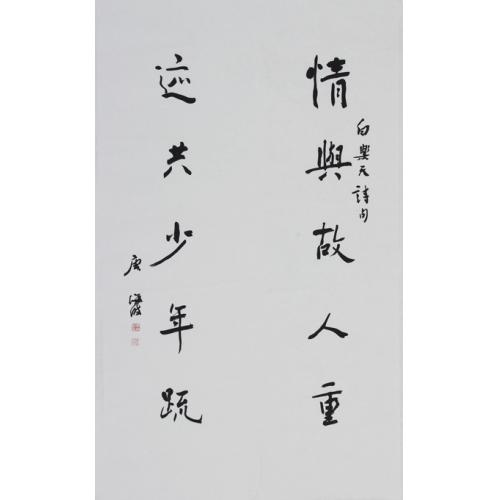 情與故人重
白樂天詩句
迹共少年疏
唐